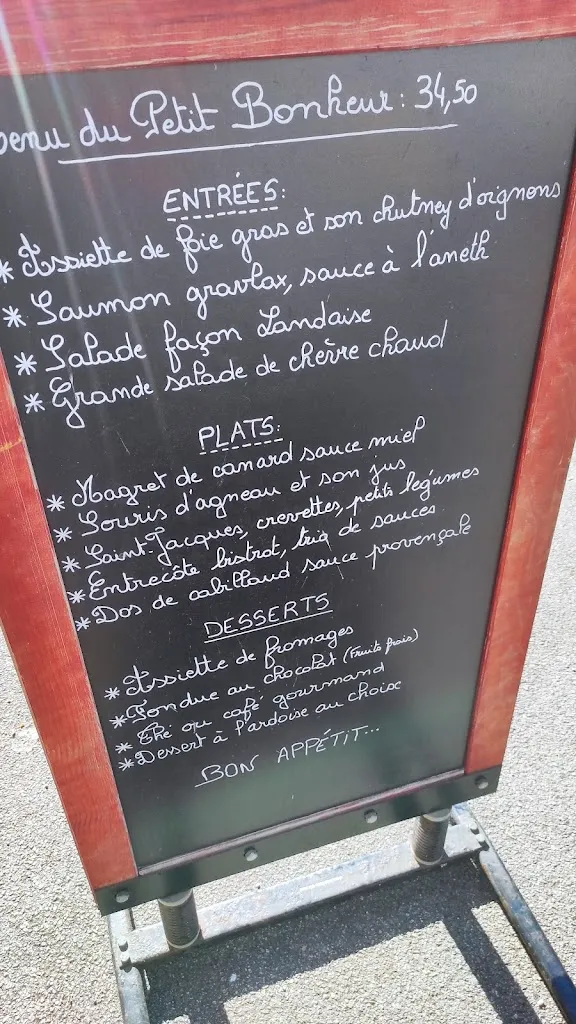 menu du Petit Bonheur : 34,50
ENTRÉES:
* Assiette de foie gras et son chutney d'oignons
* Saumon gravlax, sauce à l'aneth
* Salade façon Landaise
* Grande salade de chèvre chaud
PLATS:
* Magret de canard sauce miel
* Souris d'agneau et son jus
* Saint-Jacques, crevettes, petits legumes
* Entrecôte bistrot, trio de sauces
* Dos de cabillaud sauce provençale
DESSERTS
* Assiette de fromages
* Fondue au chocolat (Fruits frais)
* Thé ou café gourmand
* Dessert à l'ardoise au choix
BON APPÉTIT...